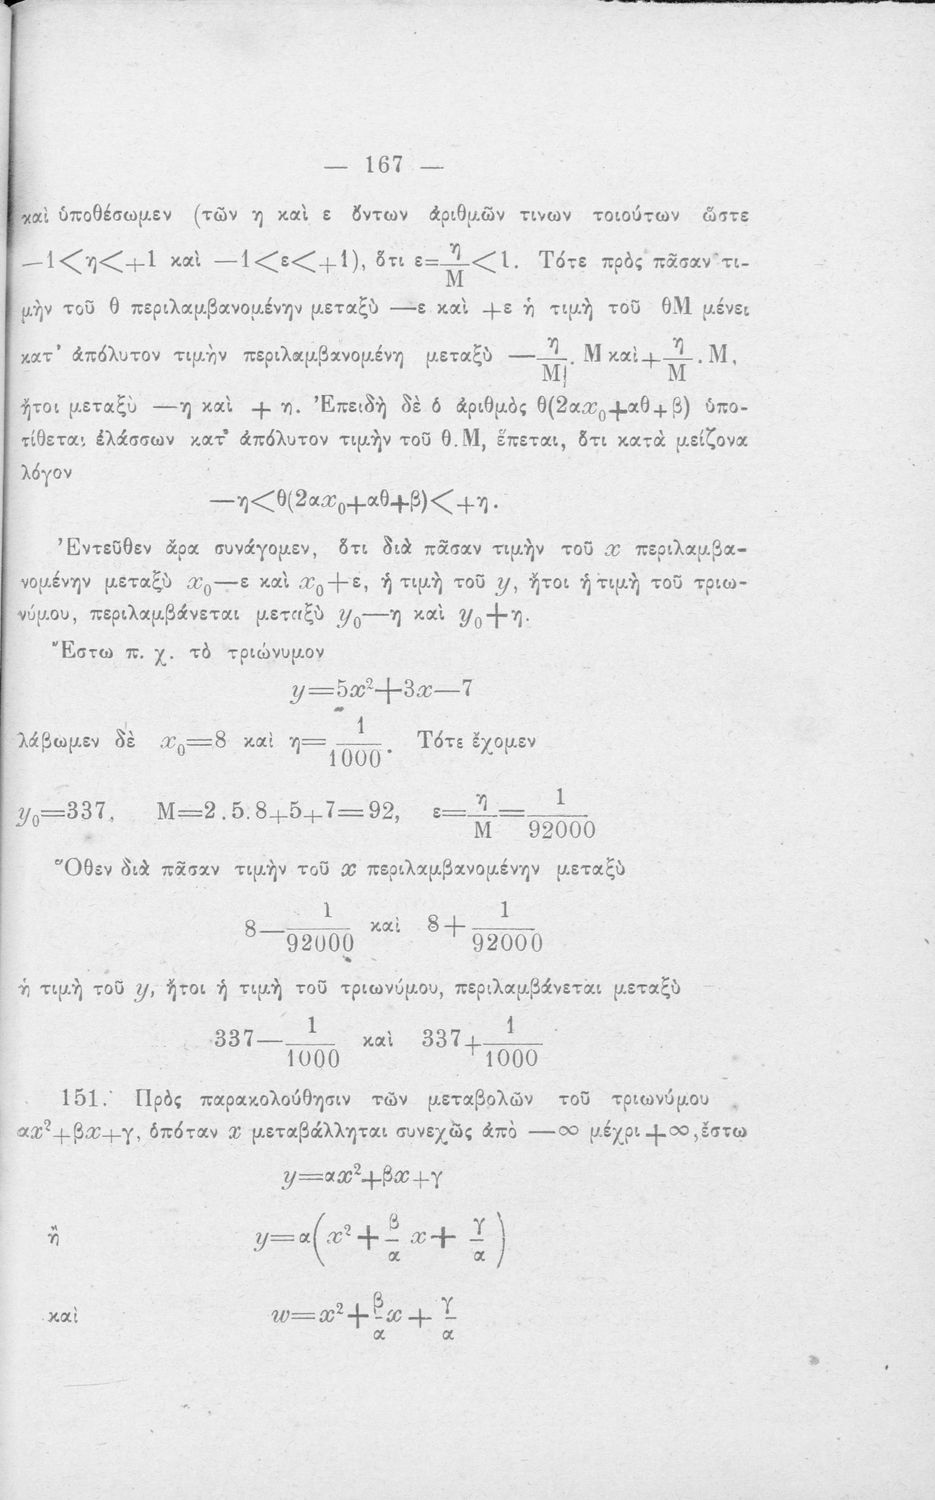 — 167 —
καὶ ὑποθέσωμεν (τῶν η καὶ ε ὄντων ἀριθμῶν τινων τοιούτων ὥστε
—1<η<+1 καὶ —1<ε<+1), ὅτι ε=η/Μ<1. Τότε πρὸς πᾶσαν τι-
μὴν τοῦ θ περιλαμβανομένην μεταξὺ —ε καὶ +ε ἡ τιμὴ τοῦ θΜ μένει
κατ’ ἀπόλυτον τιμὴν περιλαμβανομένη μεταξὺ —η/Μ. Μ καὶ+η/Μ.Μ,
ἤτοι μεταξὺ —η καὶ + η. Ἐπειδὴ δὲ ὁ ἀριθμὸς θ(2αx₀+αθ+β) ὑπο-
τίθεται ἐλάσσων κατ’ ἀπόλυτον τιμὴν τοῦ θ.Μ, ἕπεται, ὅτι κατὰ μείζονα
λόγον
—η<θ(2αx₀+αθ+β)<+η.
Ἐντεῦθεν ἄρα συνάγομεν, ὅτι διὰ πᾶσαν τιμὴν τοῦ x περιλαμβα-
νομένην μεταξὺ x₀—ε καὶ x₀+ε, ἡ τιμὴ τοῦ y, ἤτοι ἡ τιμὴ τοῦ τριω-
νύμου, περιλαμβάνεται μεταξὺ y₀—η καὶ y₀+η.
Ἔστω π. χ. τὸ τριώνυμον
y=5x²+3x—7
λάβωμεν δὲ x₀=8 καὶ η=1/1000. Τότε ἔχομεν
y₀=337, Μ=2.5.8+5+7=92, ε=η/Μ=1/92000
Ὅθεν διὰ πᾶσαν τιμὴν τοῦ x περιλαμβανομένην μεταξὺ
8—1/92000 καὶ 8+1/92000
ἡ τιμὴ τοῦ y, ἤτοι ἡ τιμὴ τοῦ τριωνύμου, περιλαμβάνεται μεταξὺ
337—1/1000 καὶ 337+1/1000
151. Πρὸς παρακολούθησιν τῶν μεταβολῶν τοῦ τριωνύμου
αx²+βx+γ, ὁπόταν x μεταβάλληται συνεχῶς ἀπὸ —∞ μέχρι +∞, ἔστω
y=αx²+βx+γ
ἢ y=α(x²+β/α x+γ/α)
καὶ w=x²+β/α x+γ/α